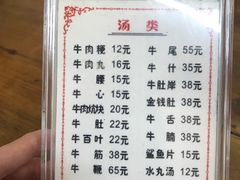 汤类
牛肉粳 12元 牛尾 55元
牛肉丸 16元 牛什 35元
牛腰 15元 牛肚岸 38元
牛心 15元 金钱肚 38元
牛肉焰块 20元 牛舌 38元
牛肚 22元 牛腩 38元
牛百叶 22元 鲨鱼片 15元
牛筋 38元 水丸汤 12元
牛鞭 65元